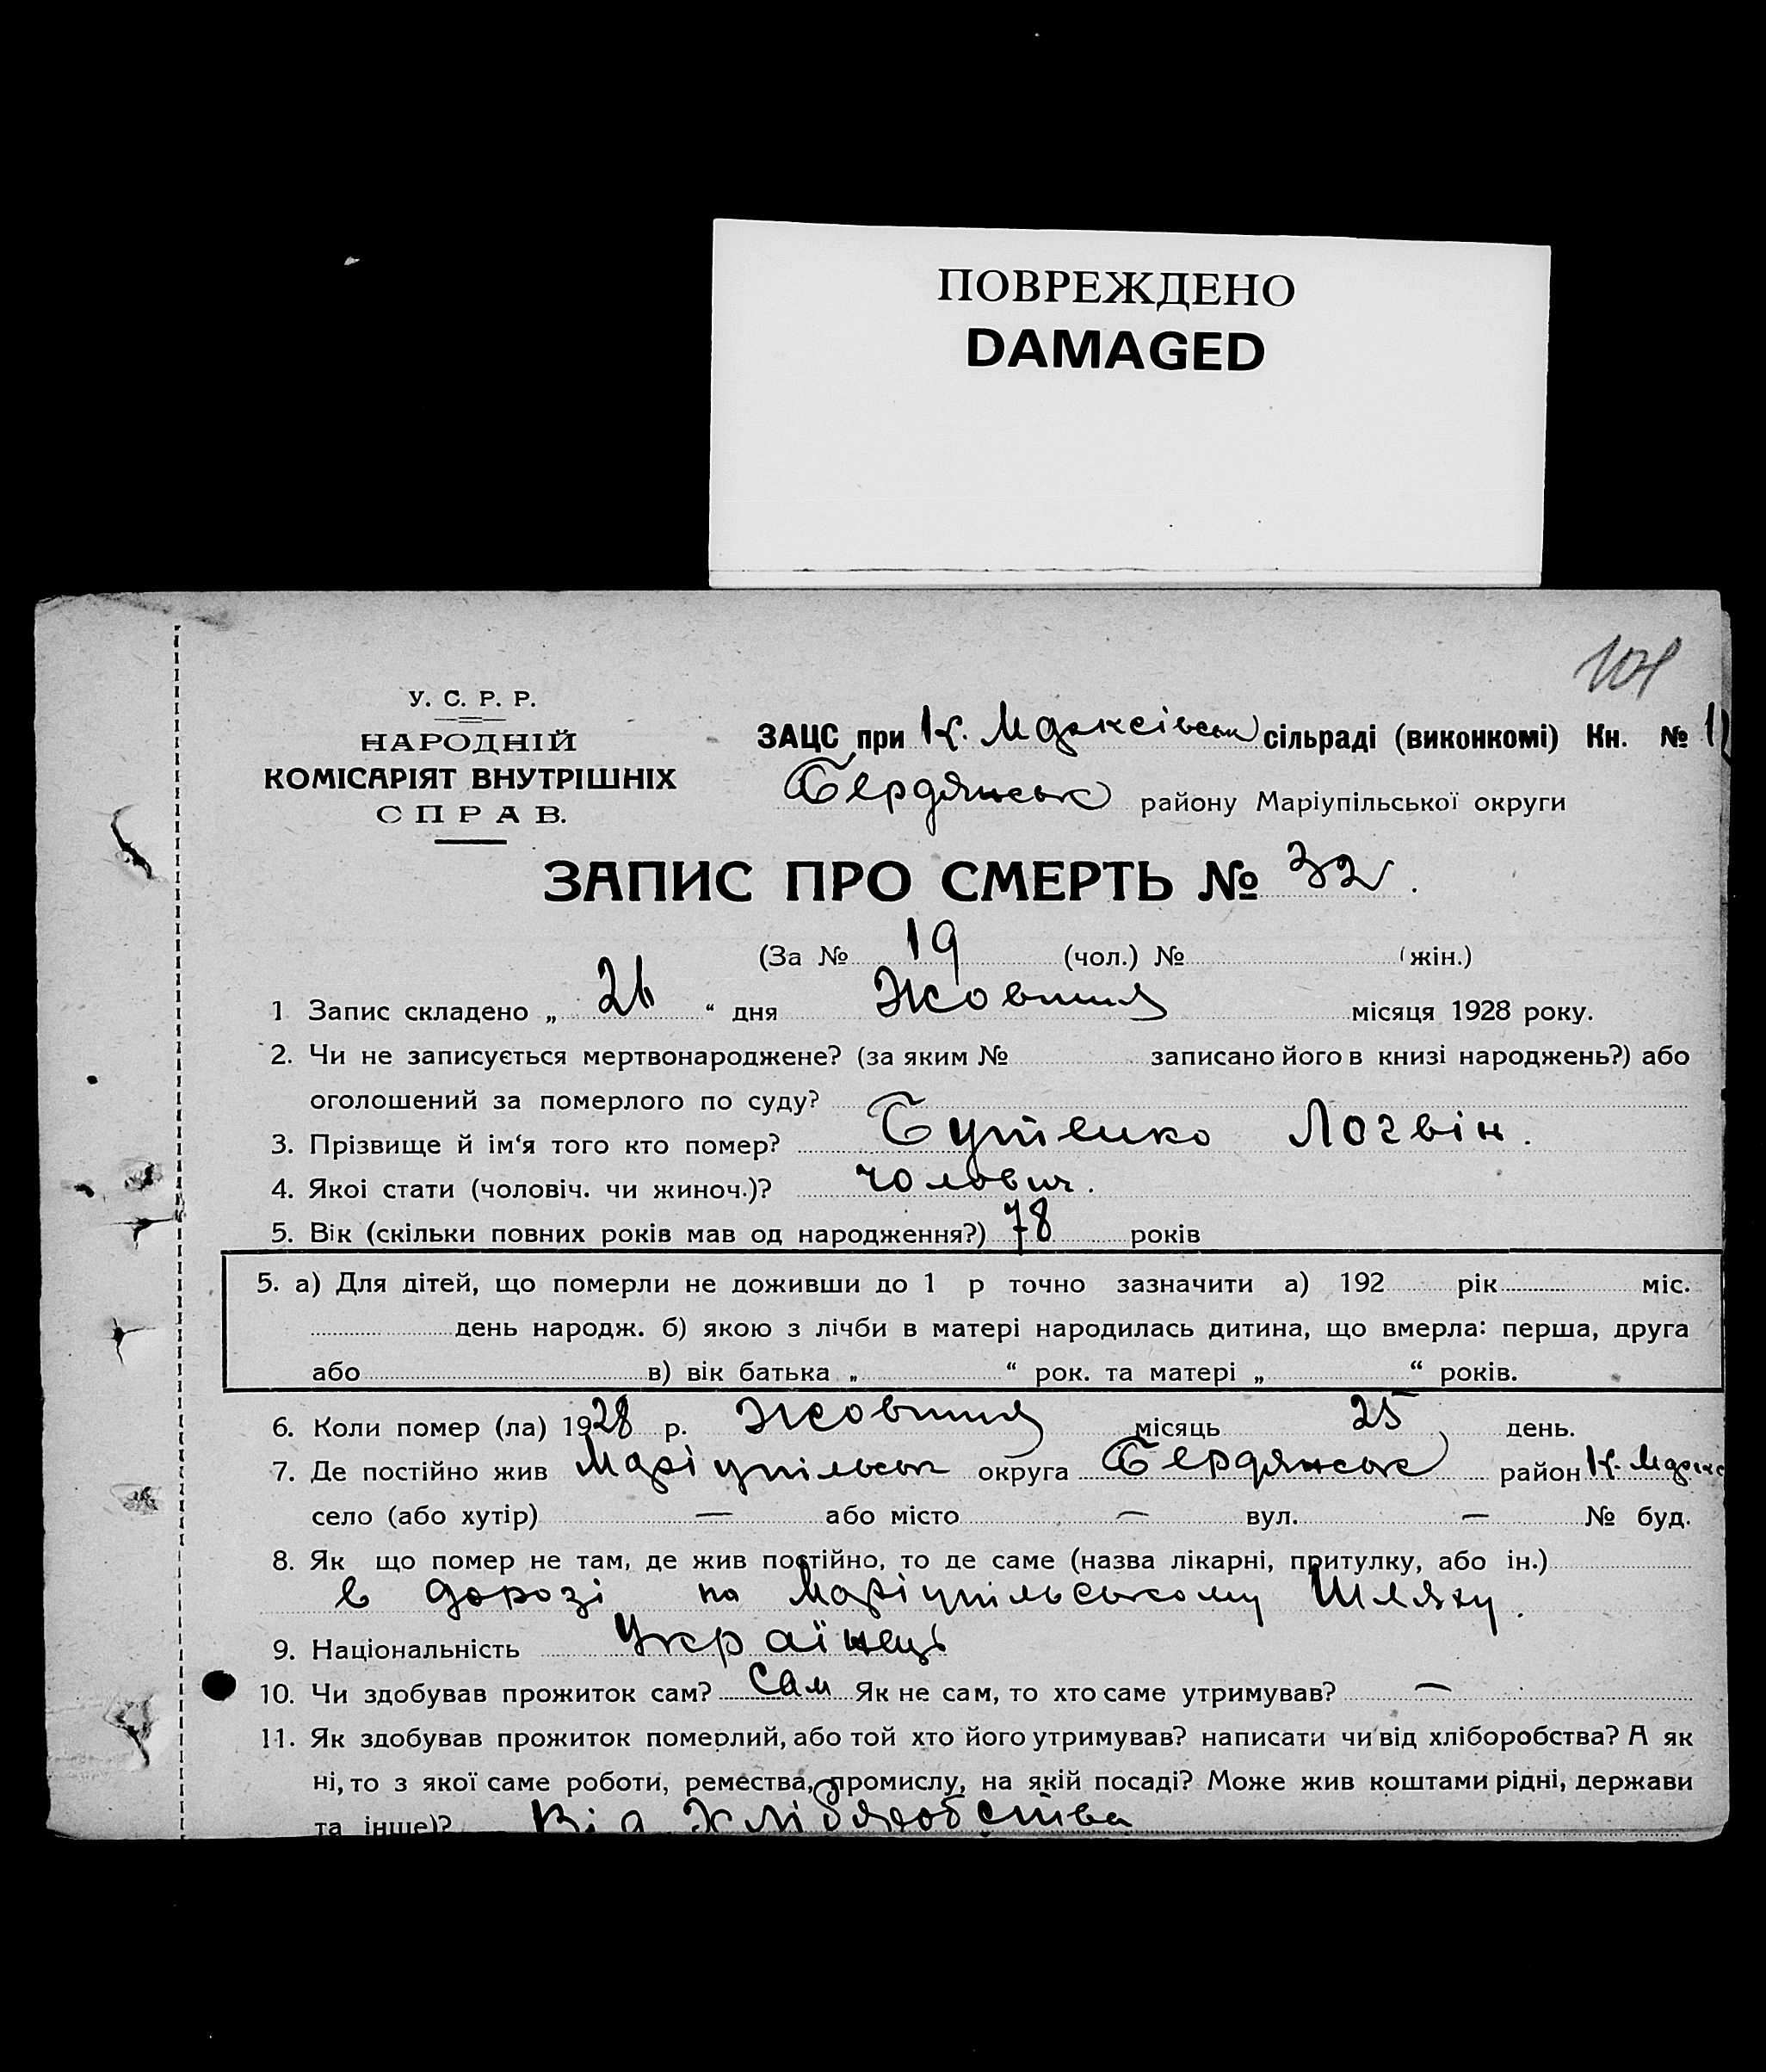 ПОВРЕЖДЕНО
DAMAGED
У. С. Р. Р.
НАРОДНІЙ
КОМІСАРІЯТ ВНУТРІШНІХ
СПРАВ.
ЗАЦС при К. Марксівськ сільраді (виконкомі) Кн. №
Бердянськ району Маріупільської округи
ЗАПИС ПРО СМЕРТЬ № 32.
(За № 19 (чол.) № (жін.)
1 Запис складено „ 26 “ дня Жовтня місяця 1928 року.
2. Чи не записується мертвонароджене? (за яким № записано його в книзі народжень?) або
оголошений за померлого по суду?
3. Прізвище й ім‘я того кто помер? Бутенко Логвін.
4. Якоі стати (чоловіч. чи жиноч.)? чоловіч.
5. Вік (скільки повних років мав од народження?) 78 років
5. а) Для дітей, що померли не доживши до 1 р точно зазначити а) 192 рік міс.
день народж. б) якою з лічби в матері народилась дитина, що вмерла: перша, друга
або в) вік батька „ “ рок. та матері „ “ років.
6. Коли помер (ла) 1928 р. Жовтня місяць 25 день.
7. Де постійно жив Маріупільськ округа Бердянськ район К. Маркс
село (або хутір) — або місто — вул. — № буд.
8. Як що помер не там, де жив постійно, то де саме (назва лікарні, притулку, або ін.)
в дорозі на Маріупільському Шляху.
9. Національність Українець
10. Чи здобував прожиток сам? Сам Як не сам, то хто саме утримував? —
11. Як здобував прожиток померлий, або той хто його утримував? написати чи від хліборобства? А як
ні, то з якої саме роботи, ремества, промислу, на якій посаді? Може жив коштами рідні, держави
та інше)? Від Хліборобства